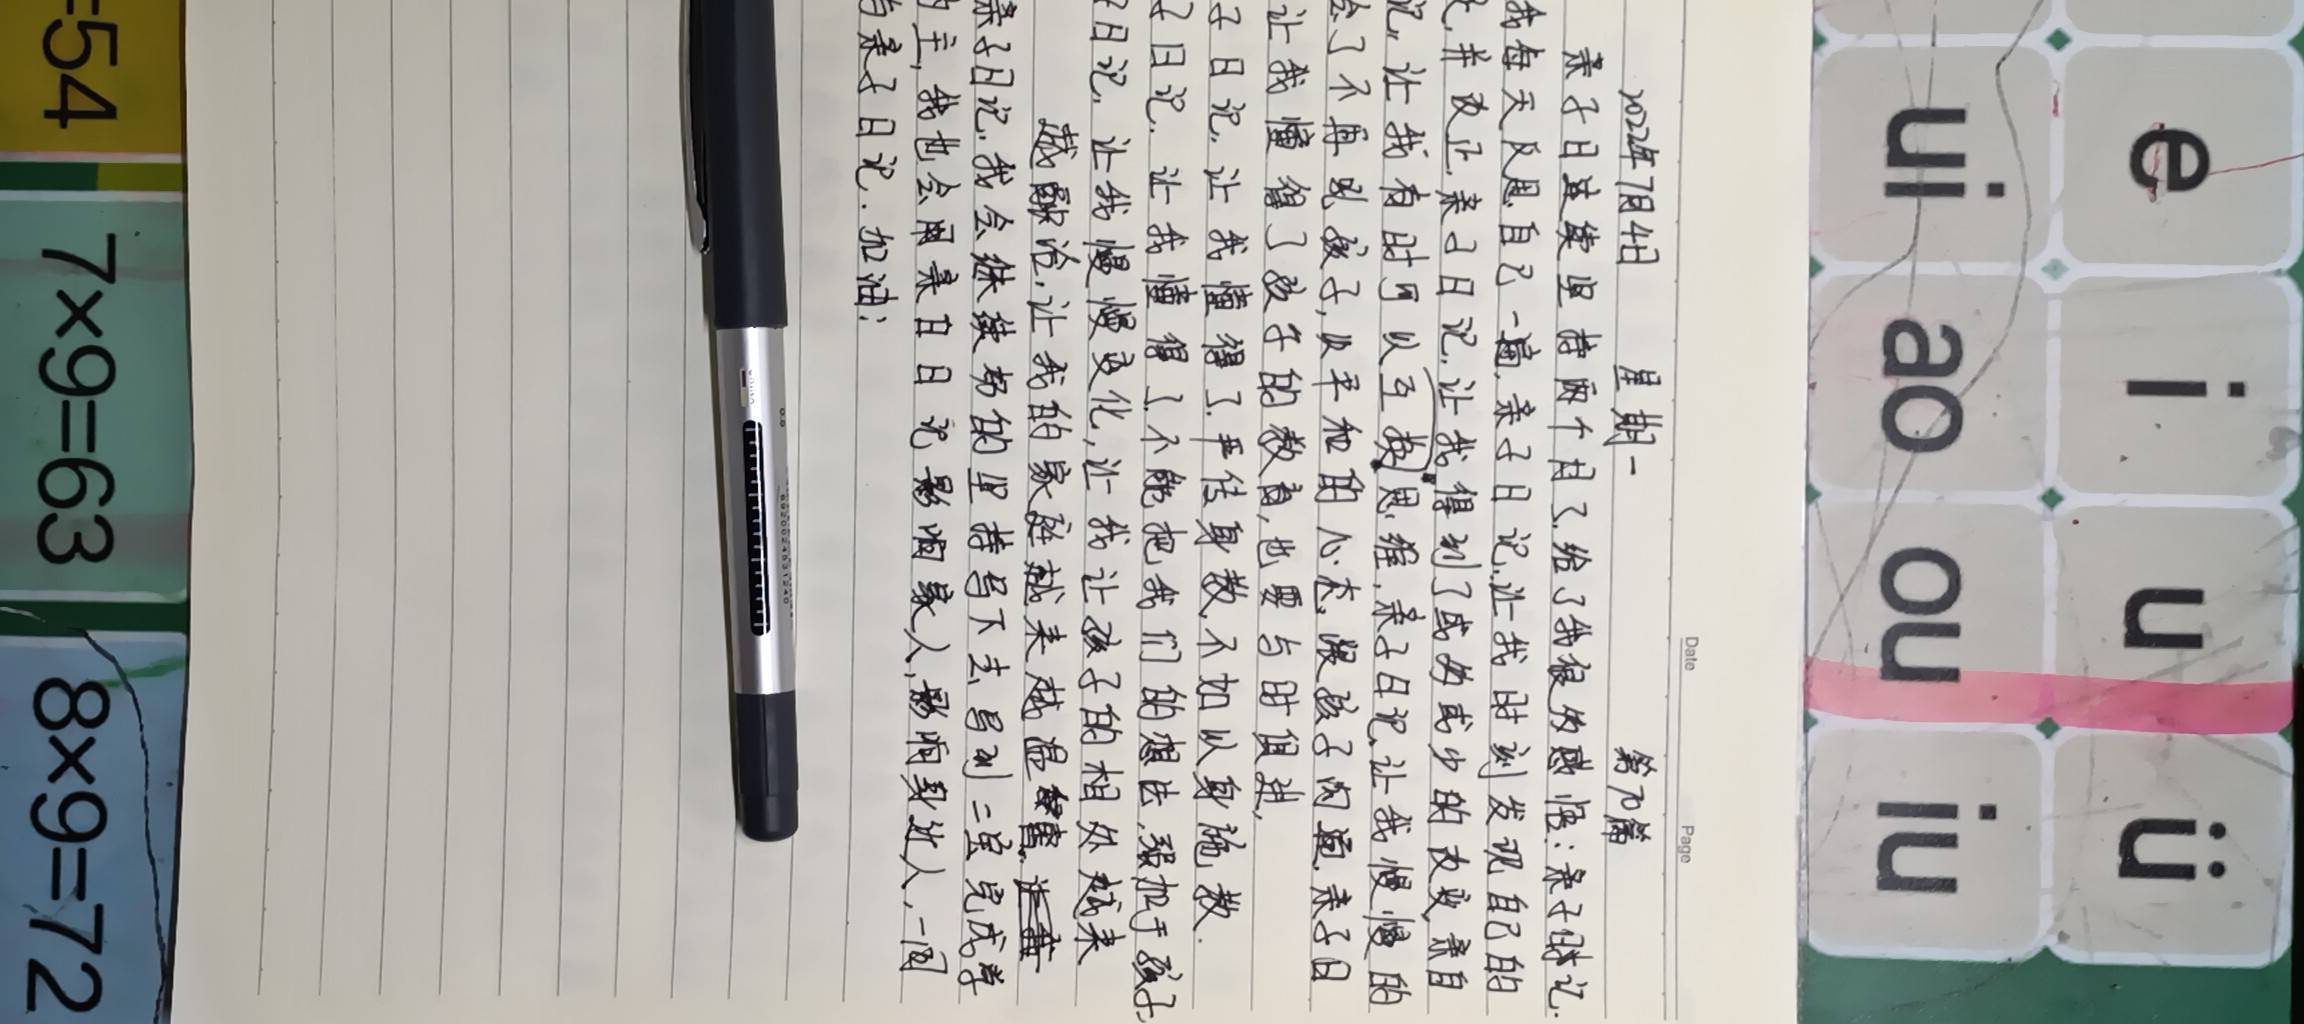 Date
Page
2022年7月4日 星期一 第70篇
亲子日连续坚持两个月了,给了我很多感悟:亲子日记.
我每天反思自己一遍,亲子日记,让我时刻发现自己的
并改正,亲子日记,让我得到了或多或少的改变,亲自
记,让我有时可以互换思维,亲子日记,让我慢慢的
会了不再吼孩子,以平和的心态,跟孩子沟通,亲子日
让我懂得了孩子的教育,也要与时俱进,
子日记,让我懂得了严传身教,不如以身施教.
子日记,让我懂得了,不能把我们的想法,强加于孩子,
子日记,让我慢慢变化,让我让孩子的相处越来
越融洽,让我的家庭越来越温馨,
亲子日记,我会继续努的坚持写下去,写到二宝完成学
的主,我也会用亲自日记影响家人,影响身边人,一同
写亲子日记.加油;
e i u ü
ui ao ou iu
=54
7×9=63
8×9=72